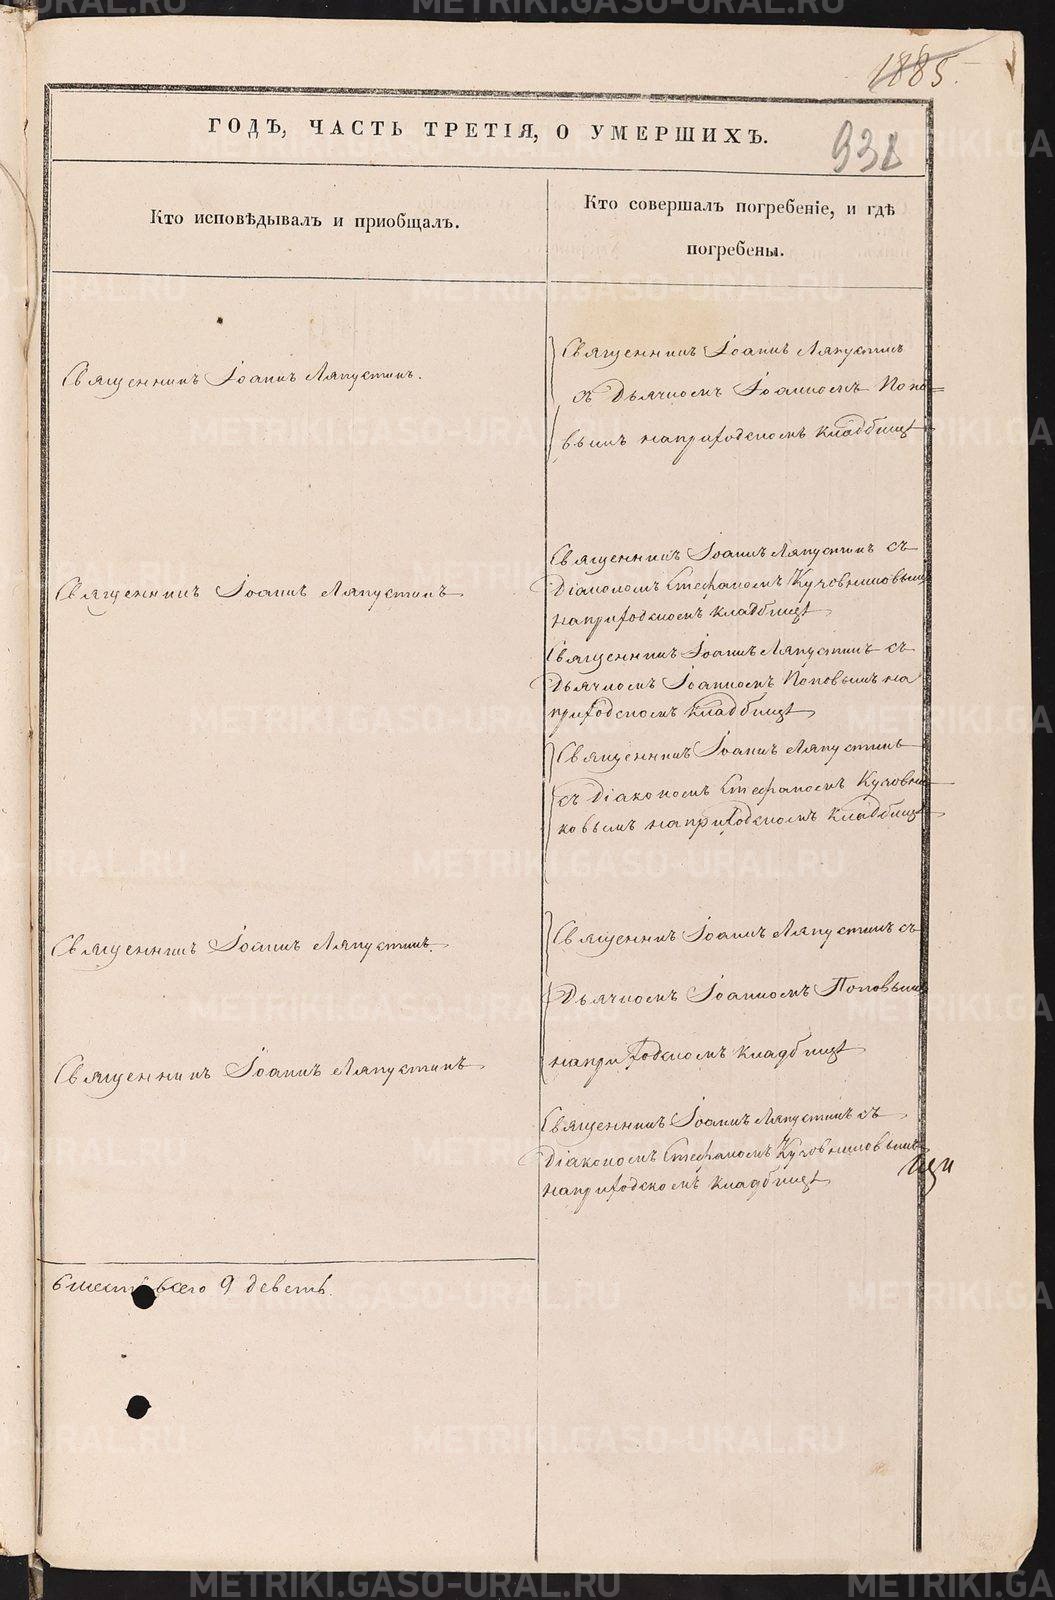 1885.
ГОДЪ, ЧАСТЬ ТРЕТІЯ, О УМЕРШИХЪ.
Кто исповѣдывалъ и приобщалъ.
Кто совершалъ погребеніе, и гдѣ
погребены.
Священникъ Іоаннъ Ляпустинъ.
Священникъ Іоаннъ Ляпустинъ
съ Дьячкомъ Іоанномъ Попо=
вымъ на приходскомъ кладбищѣ
Священникъ Іоаннъ Ляпустинъ
Священникъ Іоаннъ Ляпустинъ съ
Діакономъ Стефаномъ
на приходскомъ кладбищѣ
Священникъ Іоаннъ Ляпустинъ съ
Дьячкомъ Іоанномъ Поповымъ на
приходскомъ кладбищѣ
Священникъ Іоаннъ Ляпустинъ
съ Діакономъ Стефаномъ
ковымъ на приходскомъ кладбищѣ
Священникъ Іоаннъ Ляпустинъ.
Священникъ Іоаннъ Ляпустинъ съ
Дьячкомъ Іоанномъ Поповымъ
на приходскомъ кладбищѣ
Священникъ Іоаннъ Ляпустинъ
Священникъ Іоаннъ Ляпустинъ съ
Діакономъ Стефаномъ
на приходскомъ кладбищѣ
всего 9 девять.
METRIKI.GASO-URAL.RU